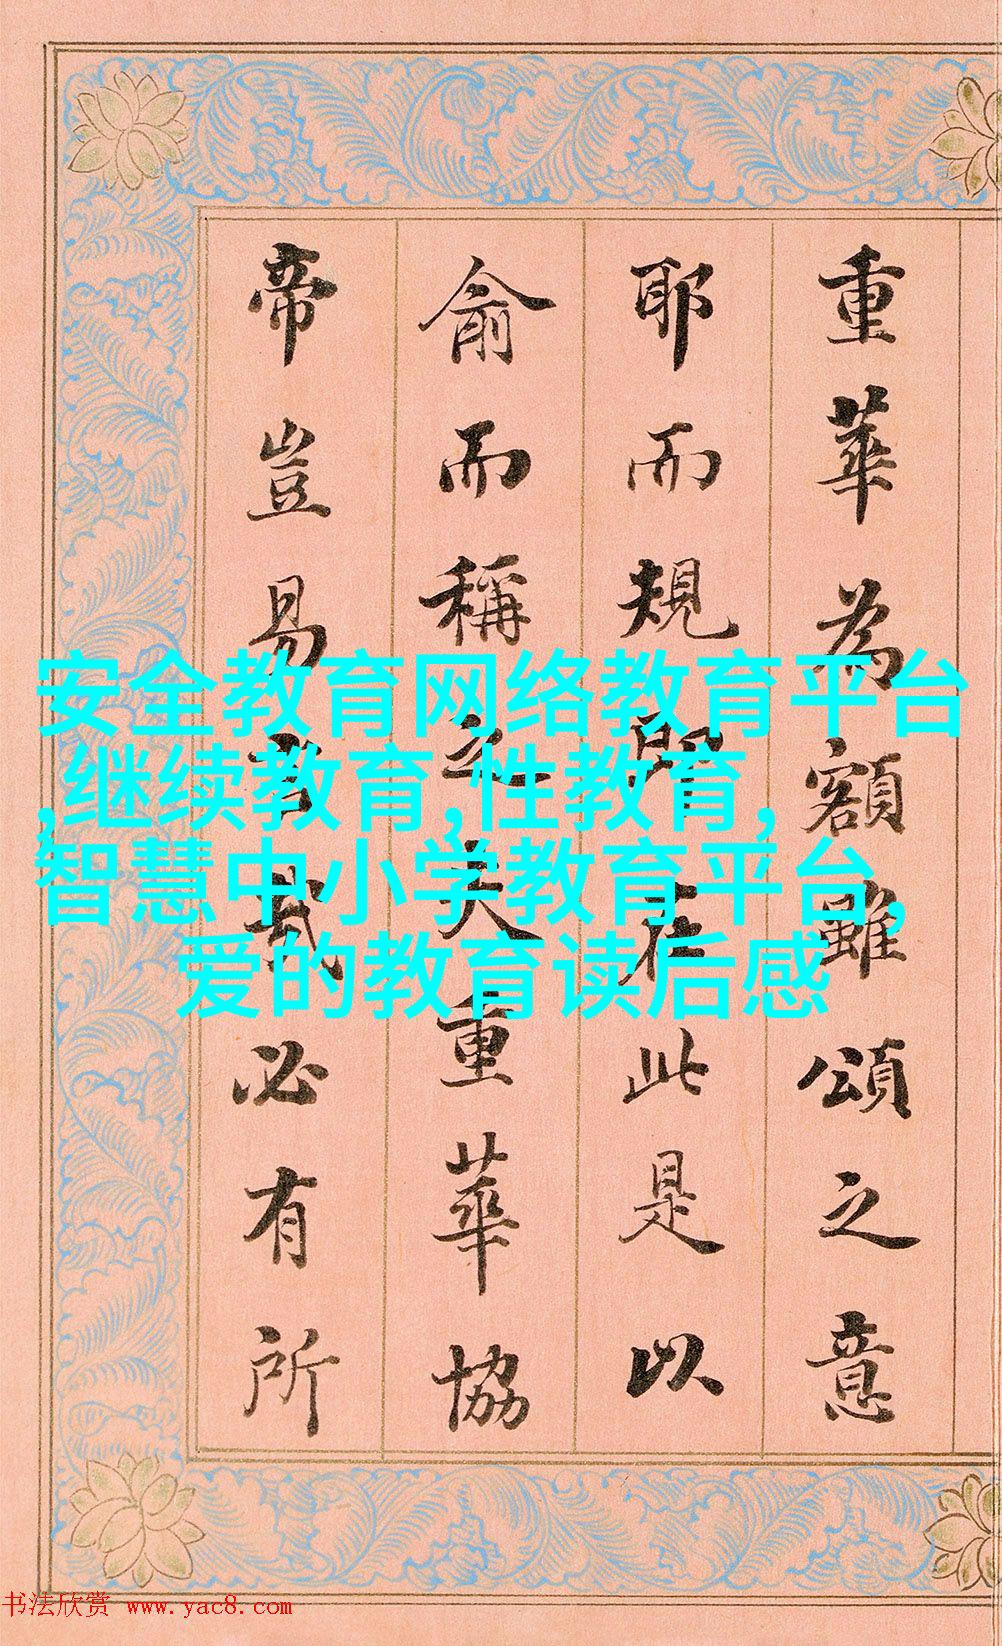 重華為額雖頌之意
耶而規在此是以
俞而稱之美重華協
帝豈易必有所
安全教育网络教育平台
,继续教育,性教育,
智慧中小学教育平台,
爱的教育读后感
书法欣赏 www.yac8.com